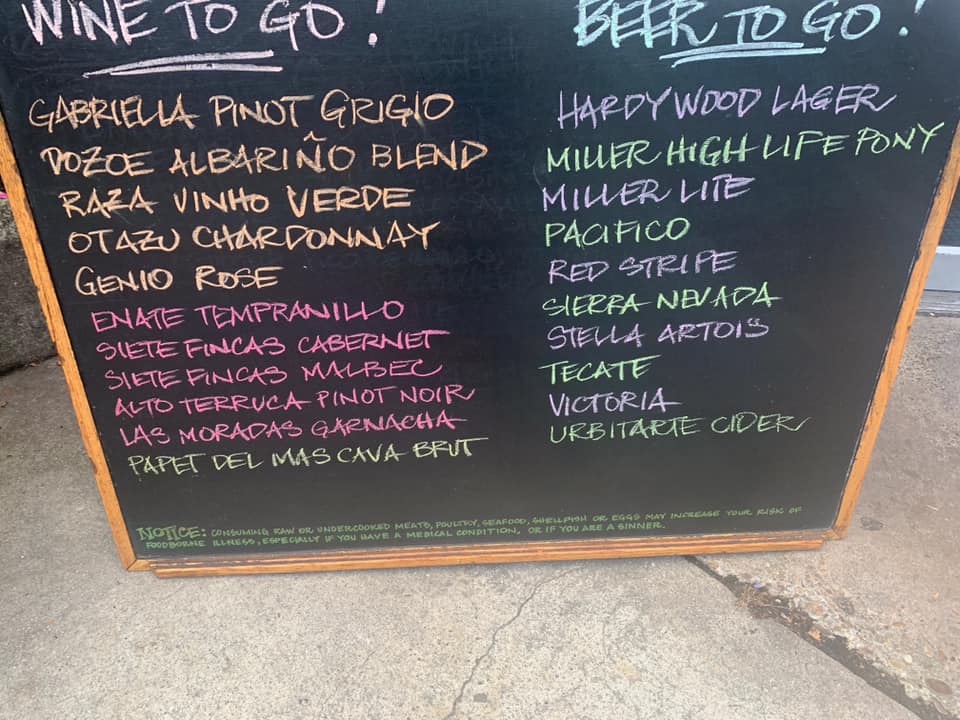 WINE TO GO!
GABRIELLA PINOT GRIGIO
DOZOE ALBARIÑO BLEND
RAZA VINHO VERDE
OTAZU CHARDONNAY
GENIO ROSE
ENATE TEMPRANILLO
SIETE FINCAS CABERNET
SIETE FINCAS MALBEC
ALTO TERRUCA PINOT NOIR
LAS MORADAS GARNACHA
PAPET DEL MAS CAVA BRUT
BEER TO GO!
HARDYWOOD LAGER
MILLER HIGH LIFE PONY
MILLER LITE
PACIFICO
RED STRIPE
SIERRA NEVADA
STELLA ARTOIS
TECATE
VICTORIA
URBITARTE CIDER
NOTICE: CONSUMING RAW OR UNDERCOOKED MEATS, POULTRY, SEAFOOD, SHELLFISH OR EGGS MAY INCREASE YOUR RISK OF
FOODBORNE ILLNESS, ESPECIALLY IF YOU HAVE A MEDICAL CONDITION, OR IF YOU ARE A SINNER.